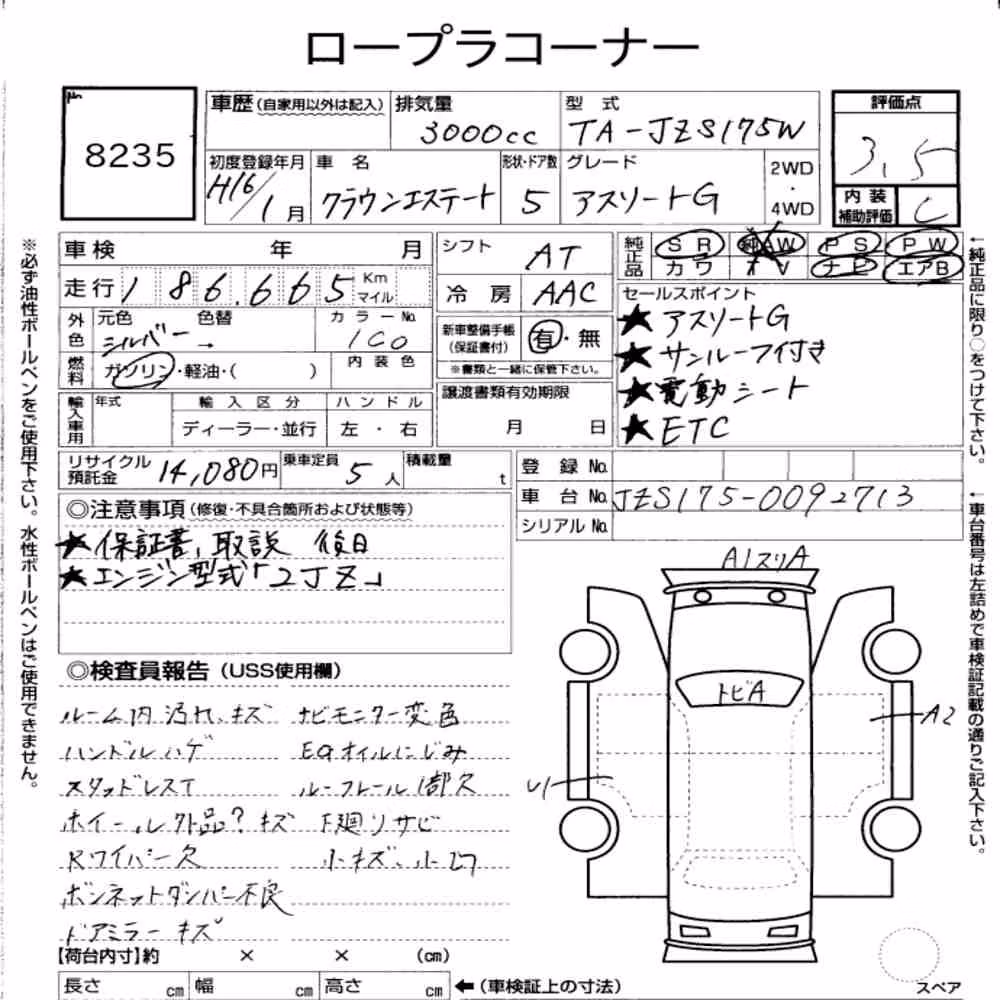 ロープラコーナー
8235
車歴(自家用以外は記入) 排気量 3000cc 型式 TA-JZS175W 評価点 3.5
初度登録年月 H16/1月 車名 クラウンエステート 形状・ドア数 5 グレード アスリートG 2WD・4WD 内装補助評価 C
車検 年 月
走行 186.665 Km マイル
シフト AT
冷房 AAC
純正品 SR 純AW PS PW
カワ TV ナビ エアB
外色 元色 シルバー 色替 → カラーNo. 1C0
燃料 ガソリン・軽油・( ) 内装色
新車整備手帳(保証書付) 有・無
※書類と一緒に保管下さい。
セールスポイント
★アスリートG
★サンルーフ付き
★電動シート
★ETC
輸入車用 年式 輸入区分 ハンドル
ディーラー・並行 左・右
譲渡書類有効期限
月 日
リサイクル預託金 14,080円 乗車定員 5人 積載量 t
登録No.
車台No. JZS175-0092713
シリアルNo.
◎注意事項(修復・不具合箇所および状態等)
★保証書、取説 後日
★エンジン型式「2JZ」
◎検査員報告(USS使用欄)
ルーム内汚れ、キズ ナビモニター変色
ハンドルハゲ EGオイルにじみ
スタッドレスT ルーフレール1部欠
ホイール外品?キズ 下廻リサビ
Rワイパー欠 小キズ、小凹
ボンネットダンパー不良
ドアミラーキズ
【荷台内寸】約 × × (cm)
長さ cm 幅 cm 高さ cm ←(車検証上の寸法)
A1スリA
トビA
A2
U1
スペア
※必ず油性ボールペンをご使用下さい。水性ボールペンはご使用できません。
←純正品に限り○をつけて下さい。
←車台番号は左詰めで車検証記載の通りご記入下さい。